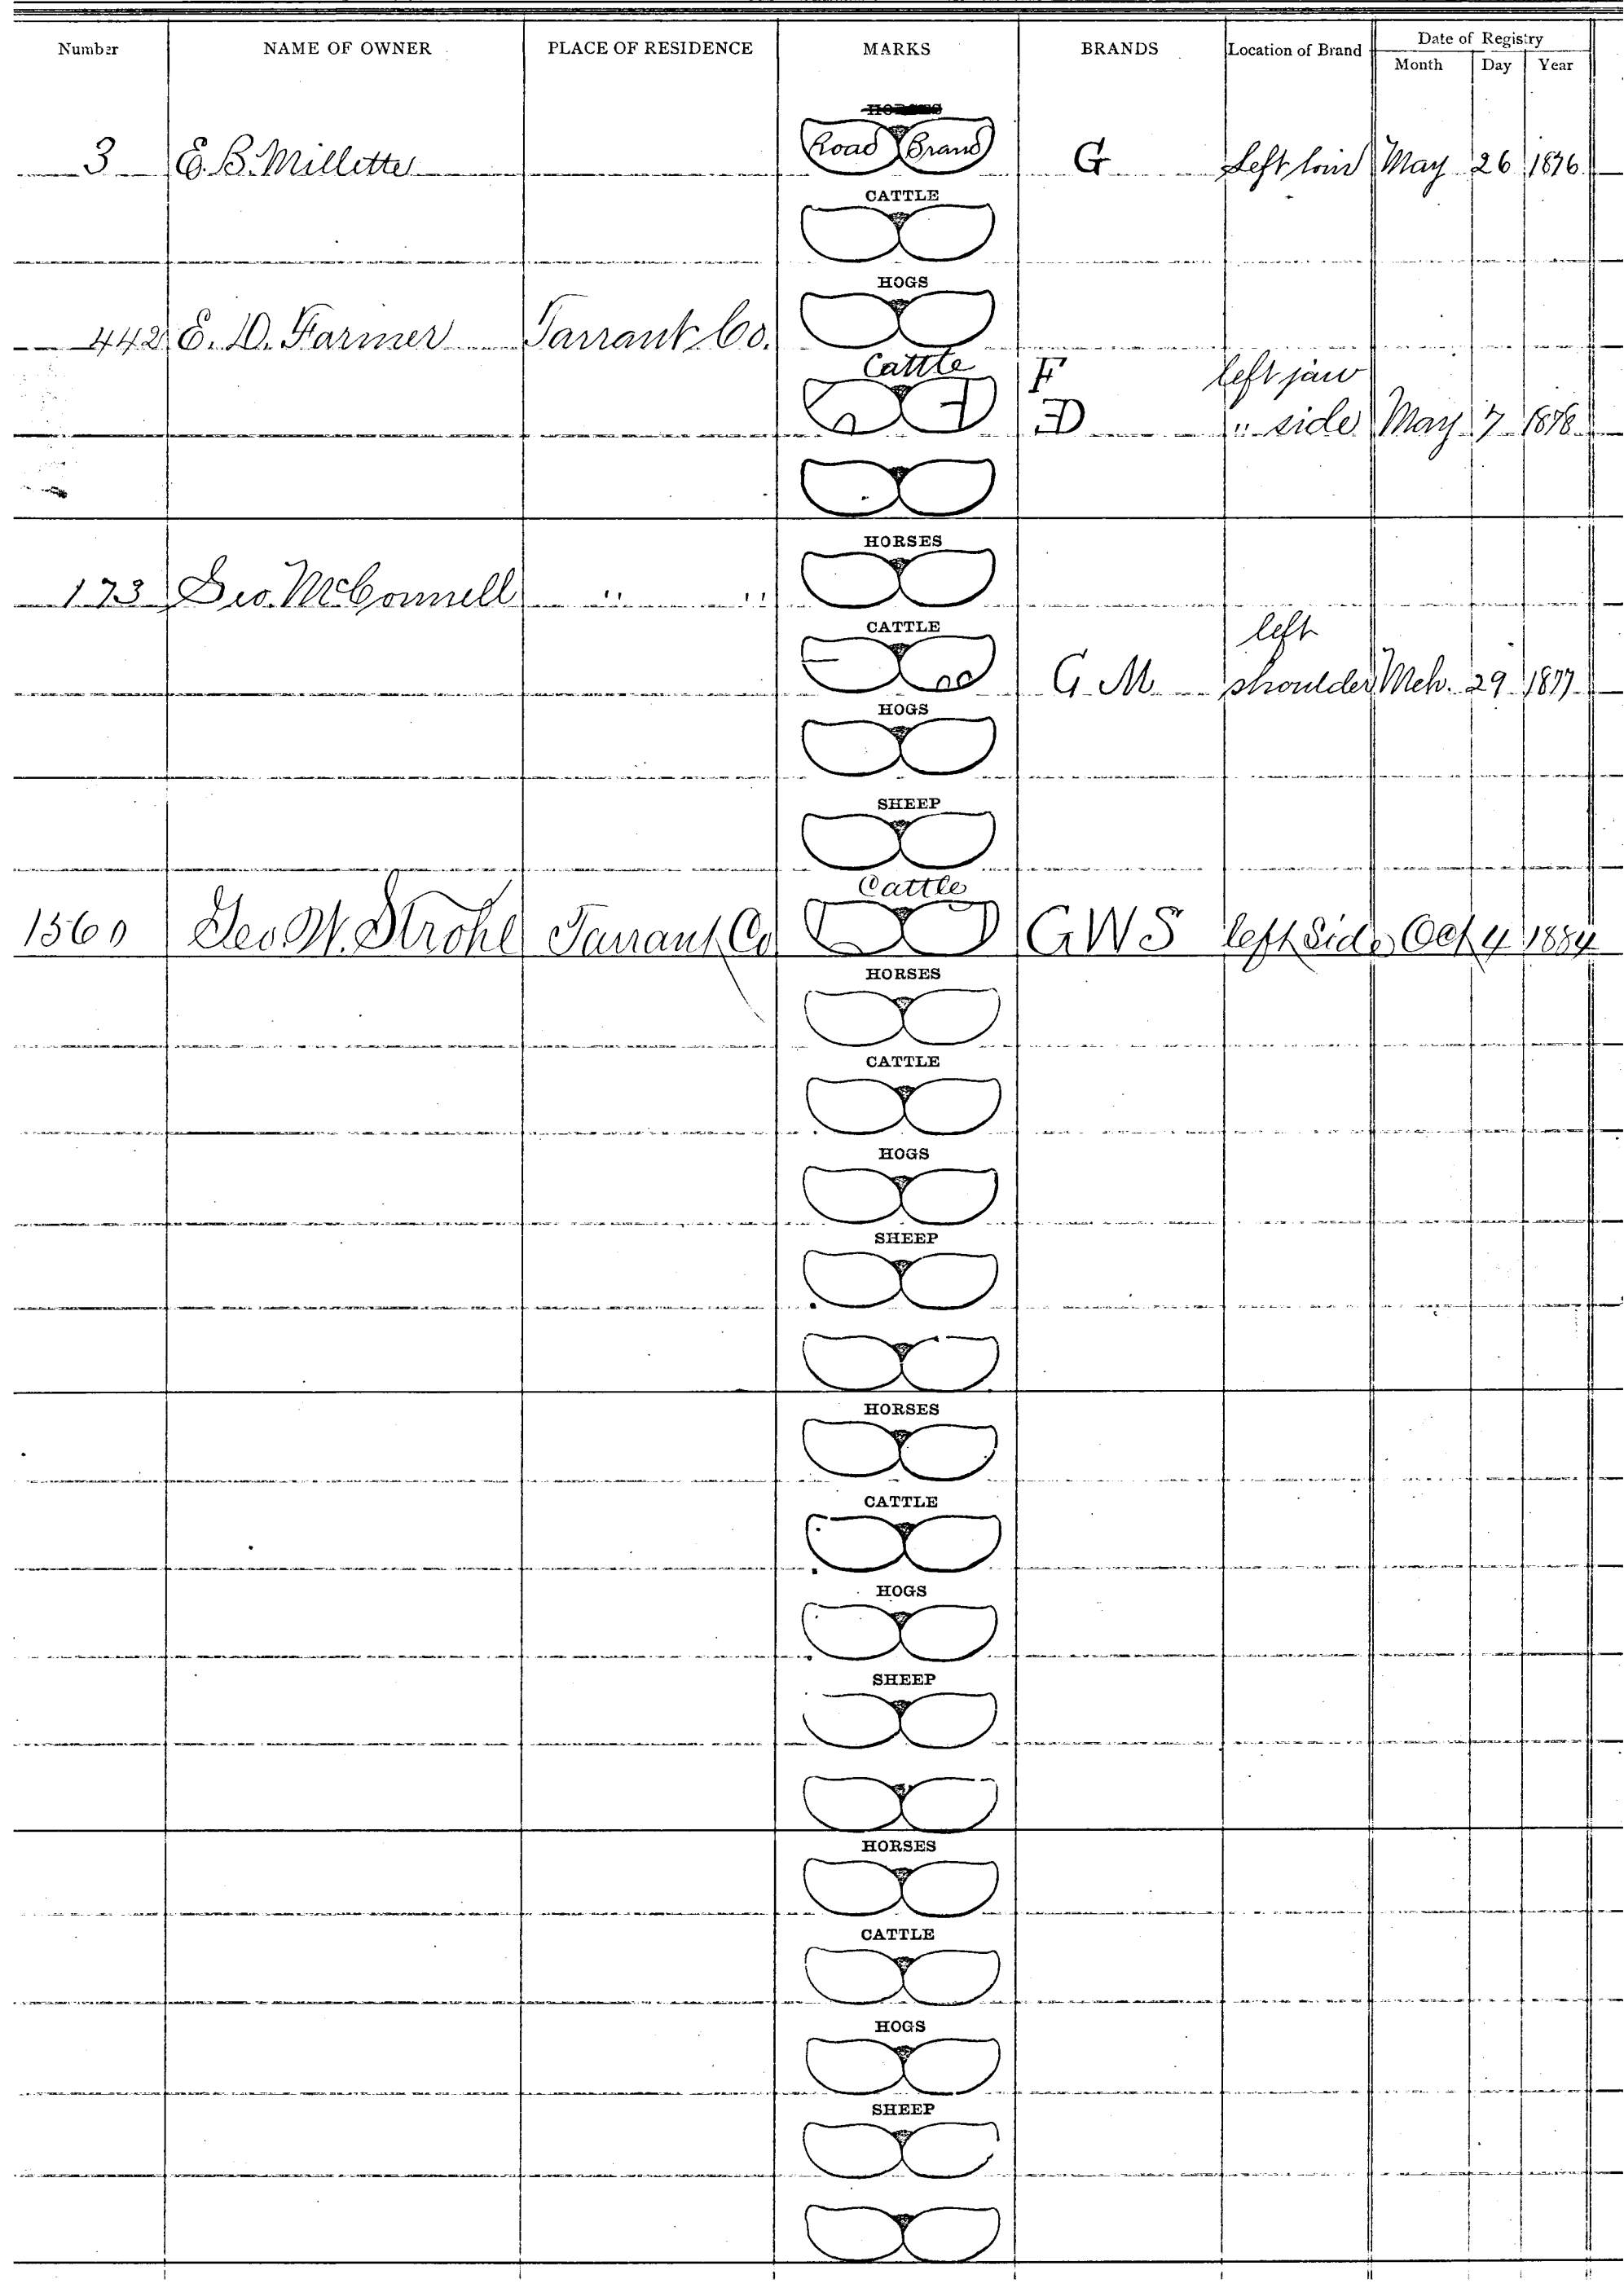 Number NAME OF OWNER PLACE OF RESIDENCE MARKS BRANDS Location of Brand Date of Registry
Month Day Year
HORSES
3 E. B. Millette Road Brand G Left loin May 26 1876
CATTLE
HOGS
442 E. D. Farmer Tarrant Co.
Cattle F left jaw
ED " side May 7 1878
HORSES
173 Geo. McConnell " "
CATTLE left
G M shoulder Mch. 29 1877
HOGS
SHEEP
Cattle
1560 Geo W. Strohl Tarrant Co GWS left Side Oct 4 1884
HORSES
CATTLE
HOGS
SHEEP
HORSES
CATTLE
HOGS
SHEEP
HORSES
CATTLE
HOGS
SHEEP